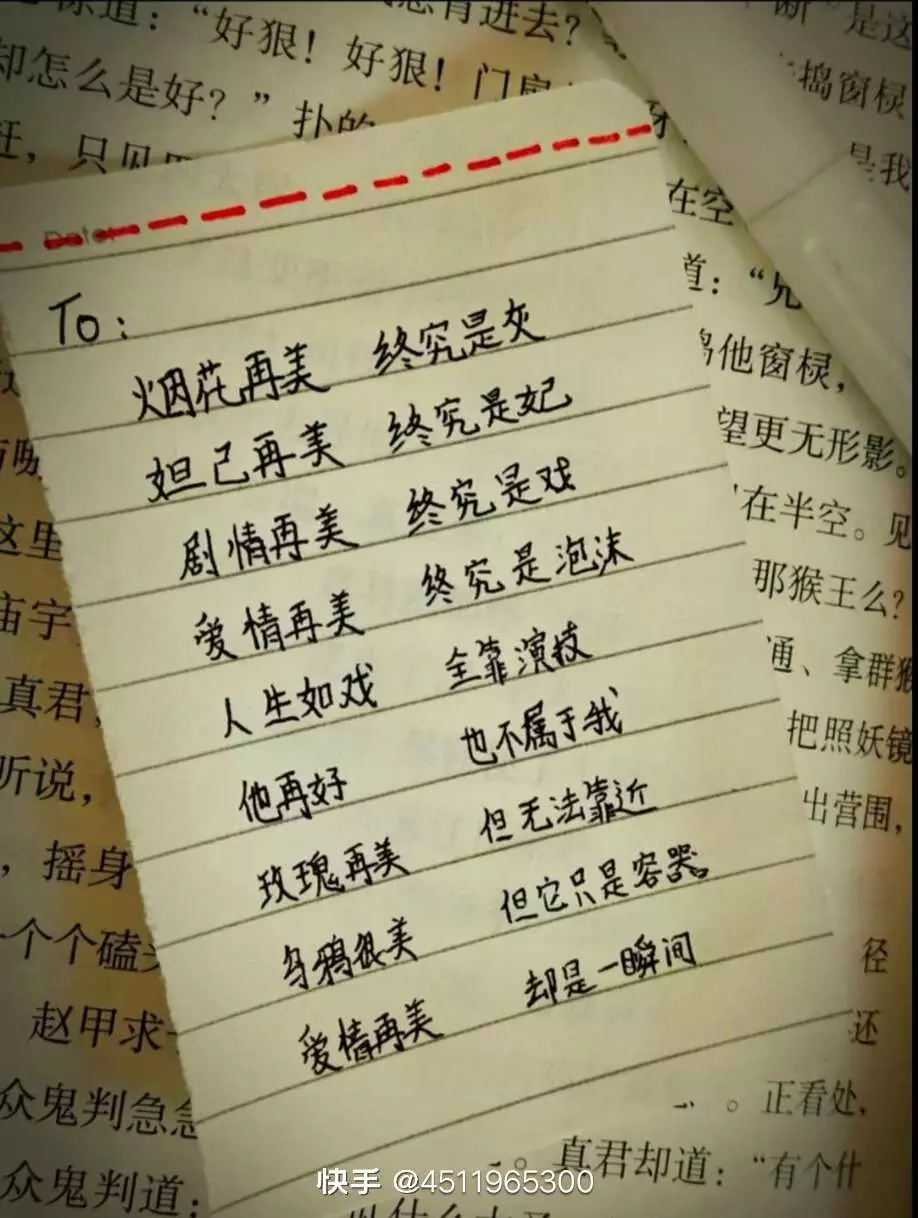 怎道：“好狠！好狠！门扇
却怎么是好？”扑的
在，只见
断”是这
捣窗棂
是我
在空
道：“
捣他窗棂，
望更无形影。
在半空。见
那猴王么？
通、拿群猴
把照妖镜
出营围，
Date:
To：
烟花再美 终究是灰
妲己再美 终究是妃
剧情再美 终究是戏
爱情再美 终究是泡沫
人生如戏 全靠演技
他再好 也不属于我
玫瑰再美 但无法靠近
乌鸦很美 但它只是容器。
爱情再美 却是一瞬间
这里
庙宇
真君，
听说，
，摇身
一个个磕头
赵甲求
众鬼判急急
众鬼判道：
径
还
。正看处，
。真君却道：“有个什
快手 @4511965300